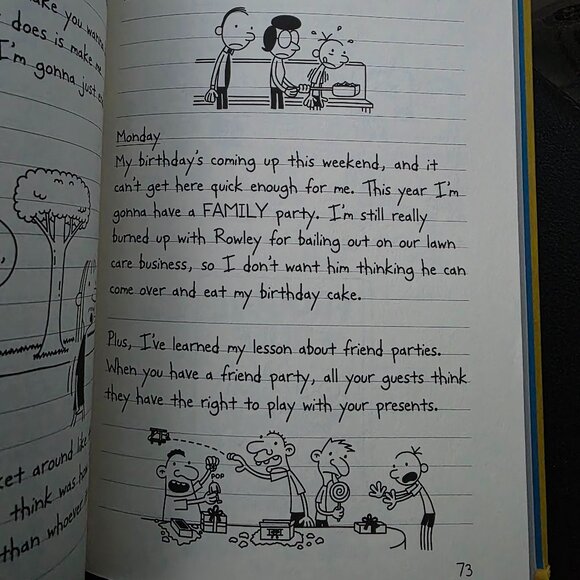 make you wan
does is make me
I'm gonna just
Monday
My birthday's coming up this weekend, and it
can't get here quick enough for me. This year I'm
gonna have a FAMILY party. I'm still really
burned up with Rowley for bailing out on our lawn
care business, so I don't want him thinking he can
come over and eat my birthday cake.
Plus, I've learned my lesson about friend parties.
When you have a friend party, all your guests think
they have the right to play with your presents.
POP
ket around like
think was
than whoever
73